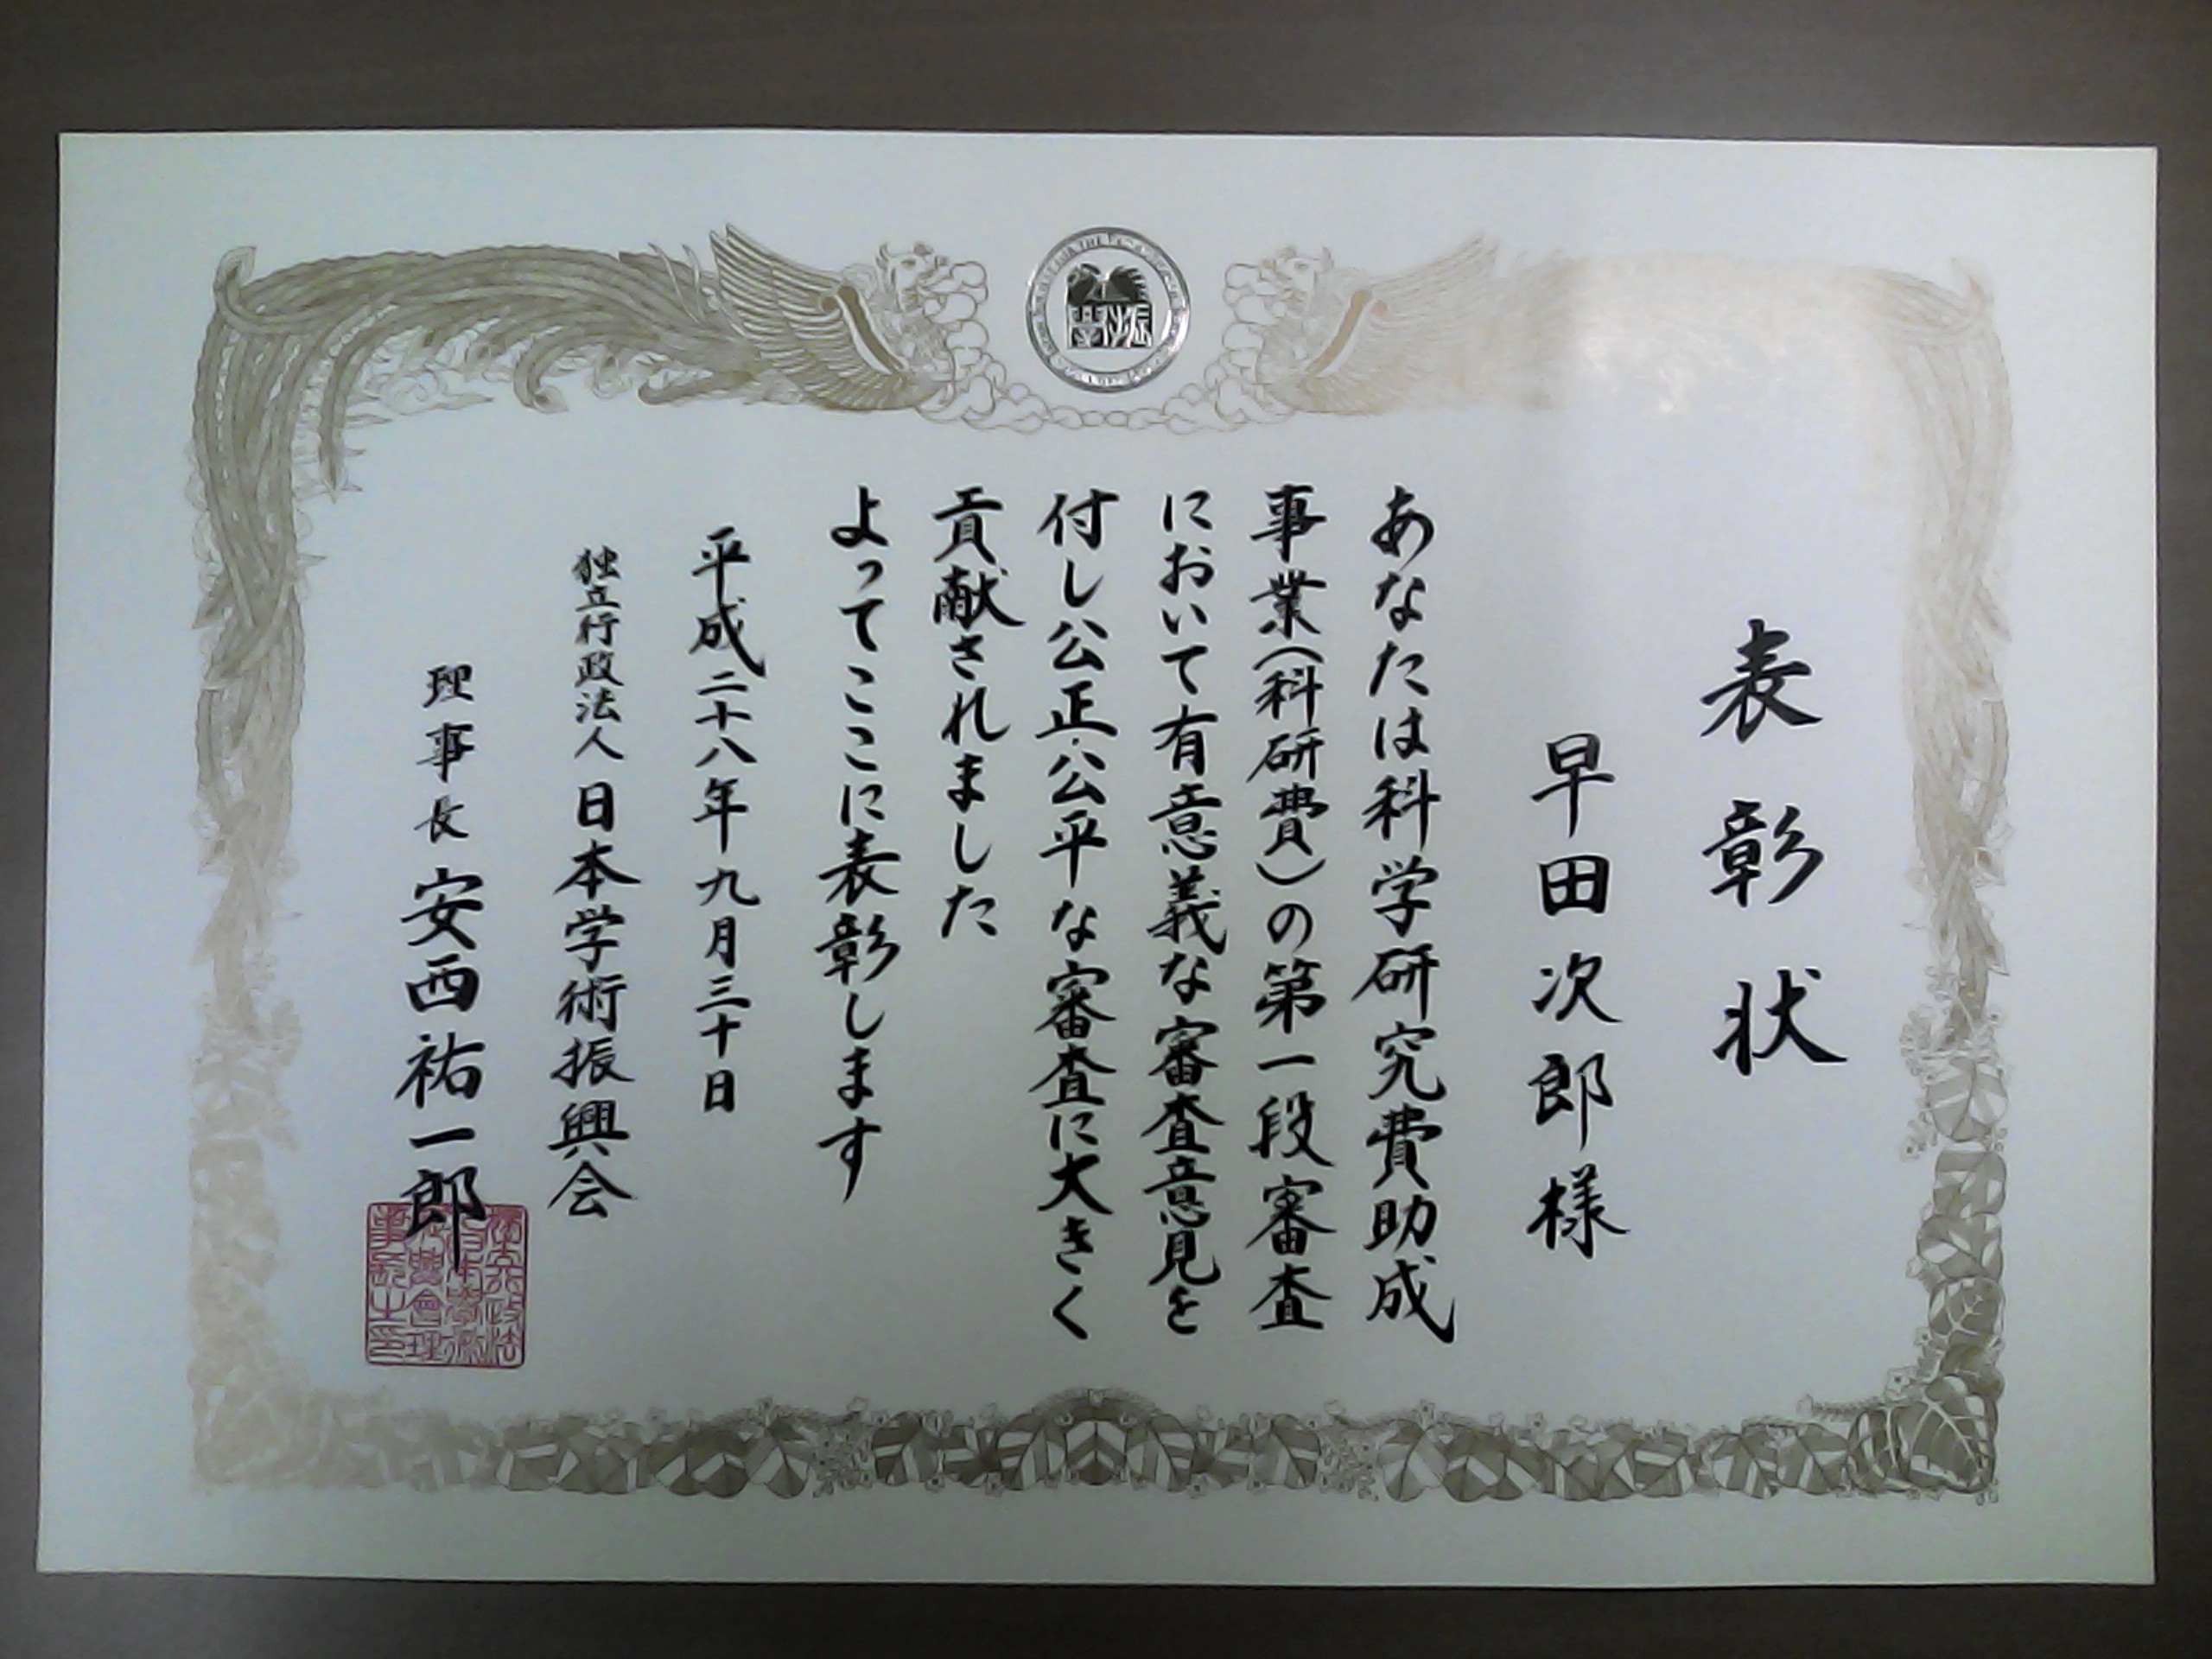 表彰状
早田次郎様
あなたは科学研究費助成
事業(科研費)の第一段審査
において有意義な審査意見を
付し公正・公平な審査に大きく
貢献されました
よってここに表彰します
平成二十八年九月三十日
独立行政法人日本学術振興会
理事長安西祐一郎